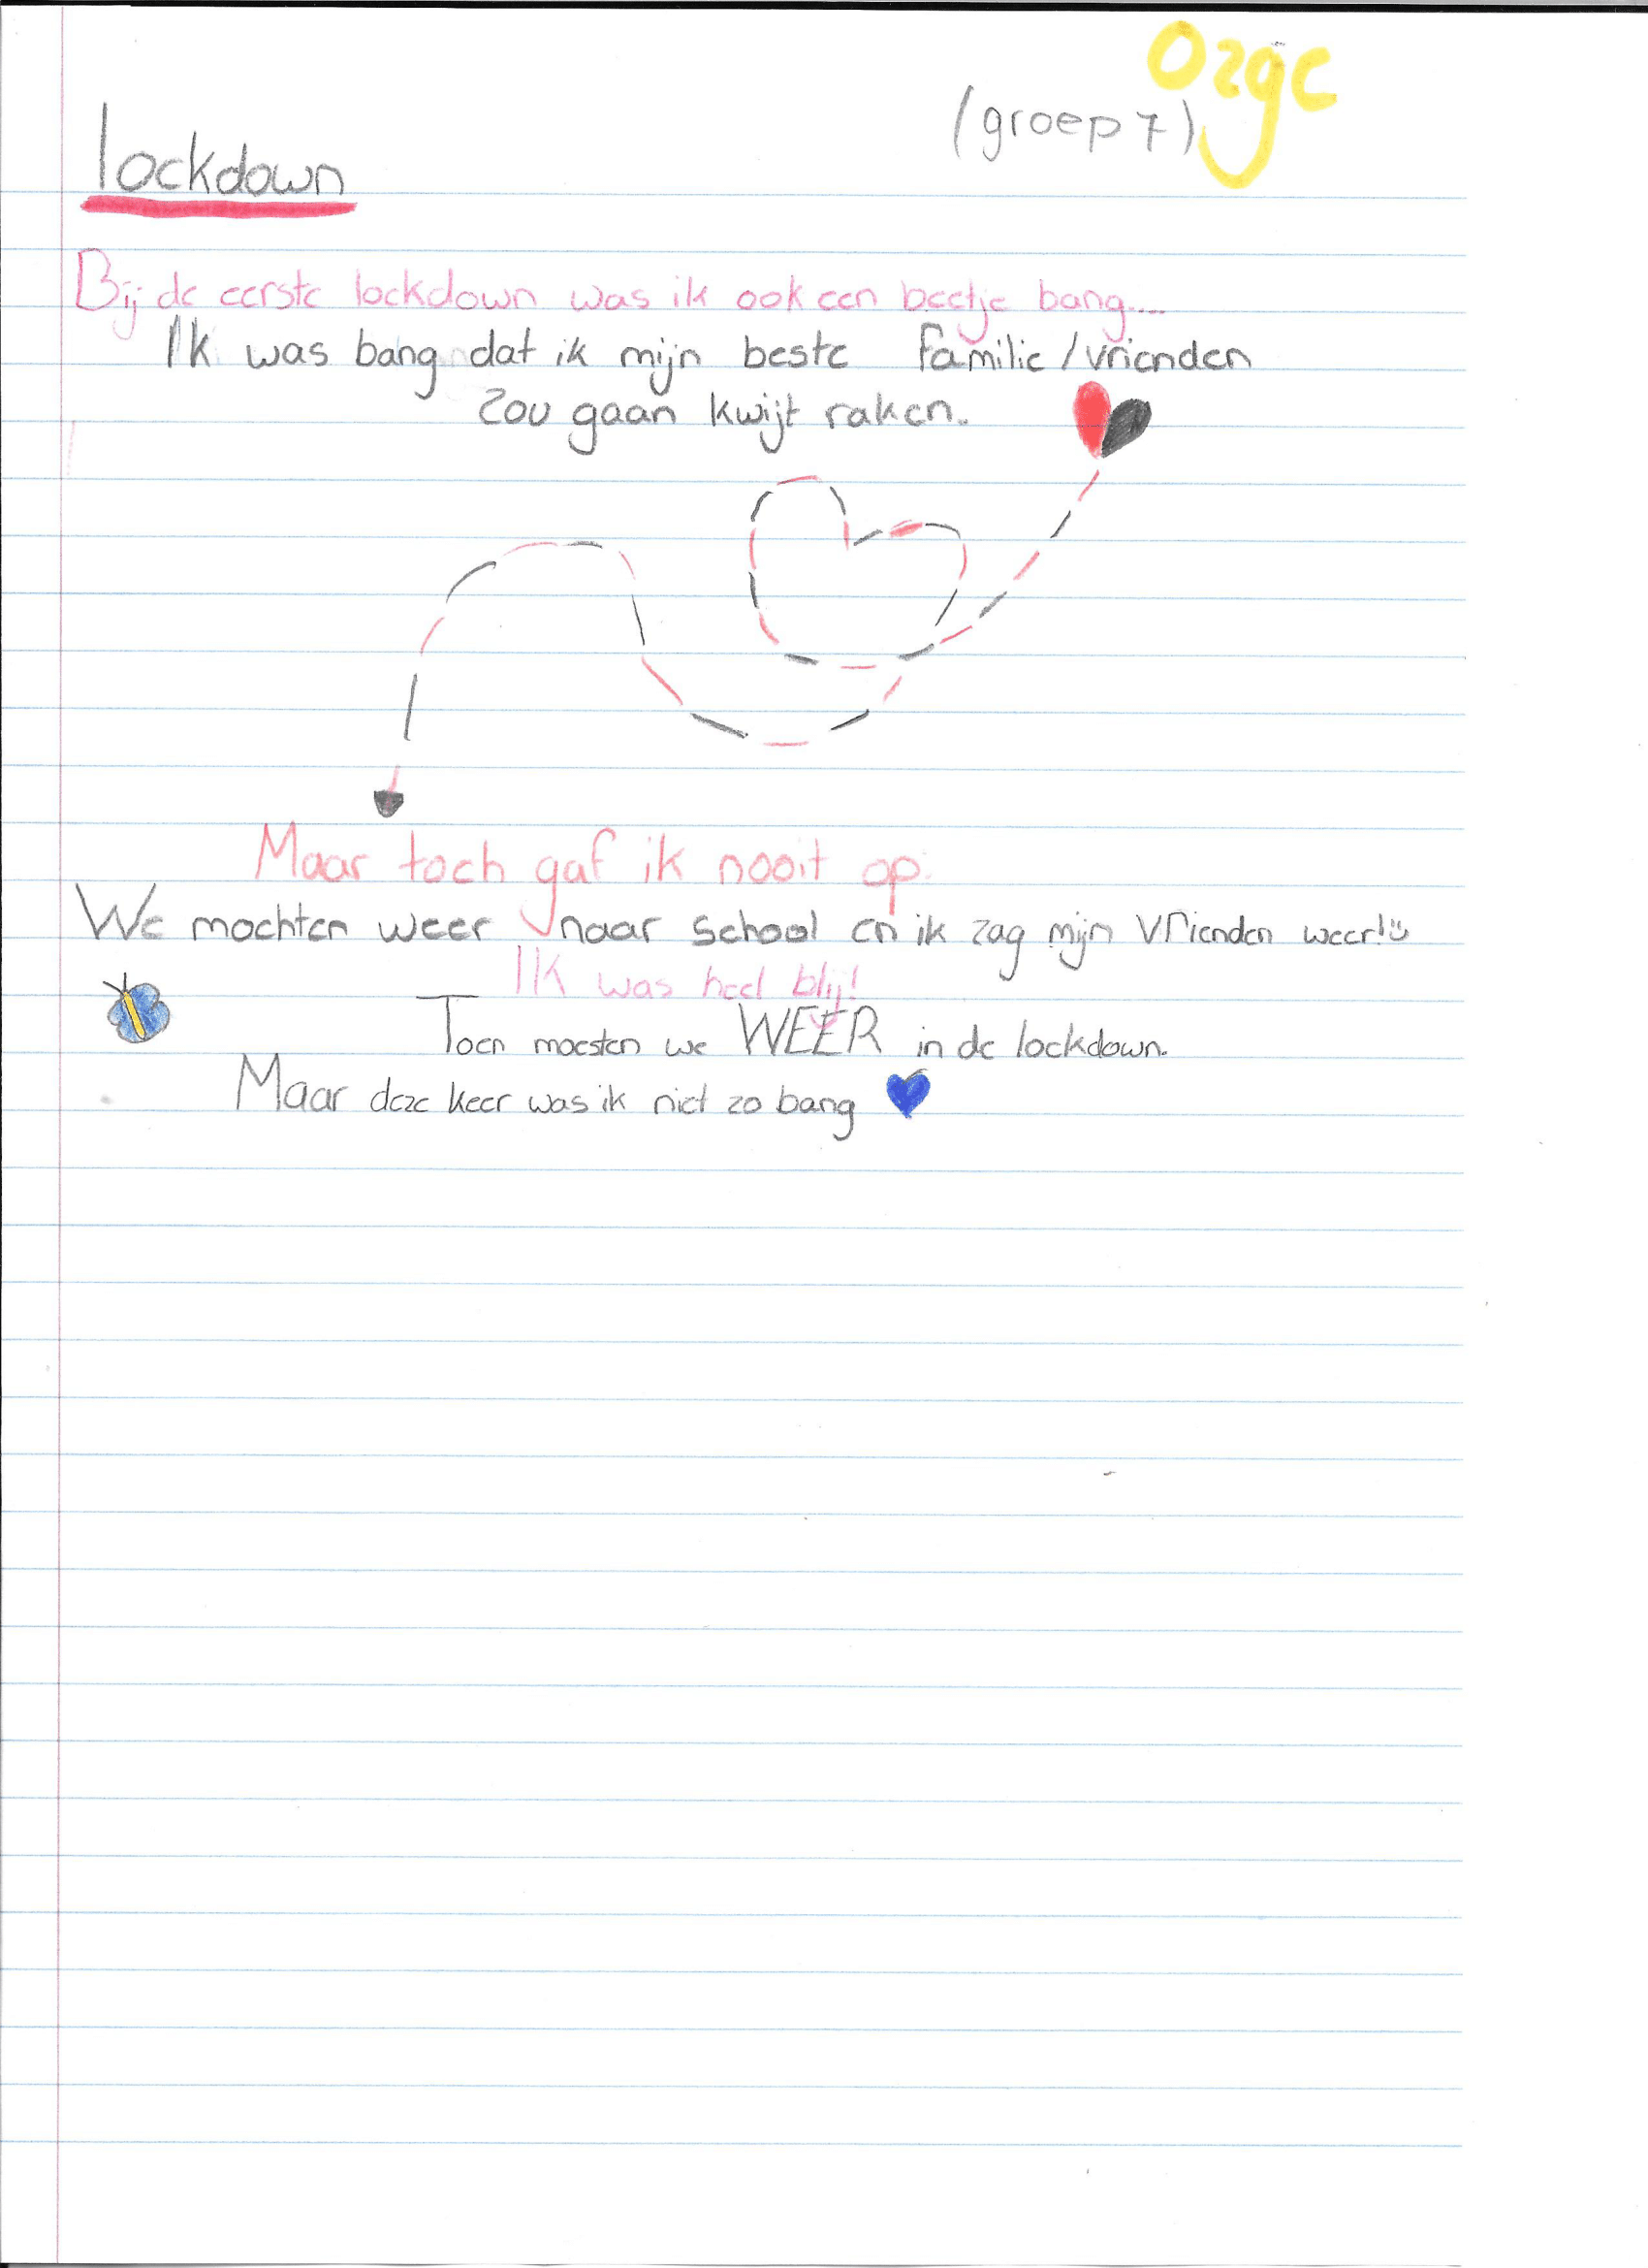 Ozge
(groep 7)
lockdown
Bij de eerste lockdown was ik ook een beetje bang....
Ik was bang dat ik mijn beste familie/vrienden
zou gaan kwijt raken.
Maar toch gaf ik nooit op.
We mochten weer naar school en ik zag mijn vrienden weer!
Ik was heel blij!
Toen moesten we WEER in de lockdown.
Maar deze keer was ik niet zo bang